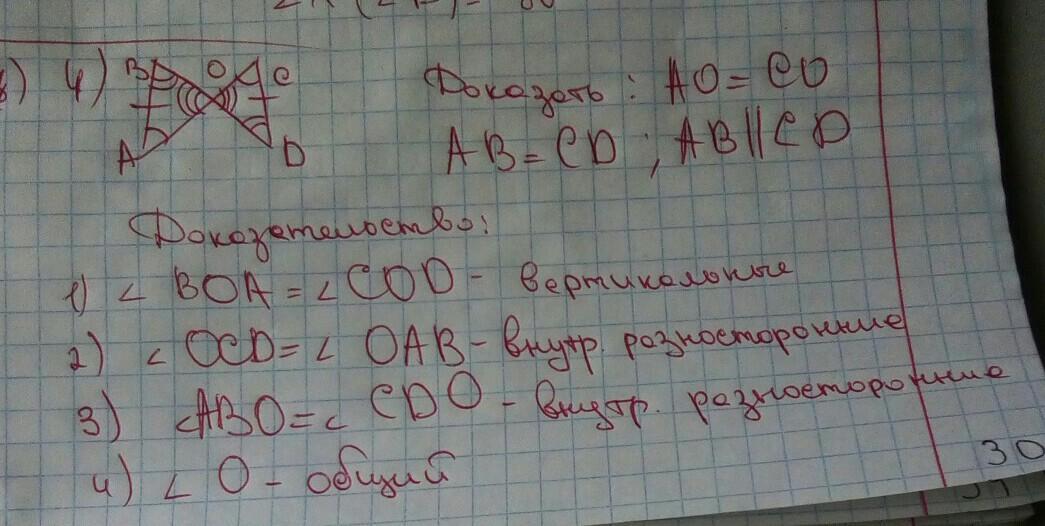 4) B O C
A D
Доказать: AO = CO
AB = CD ; AB || CD
Доказательство:
1) ∠ BOA = ∠ COD - вертикальные
2) ∠ OCD = ∠ OAB - внутр. разносторонние
3) ∠ABO = ∠ CDO - внутр. разносторонние
4) ∠ O - общий
30